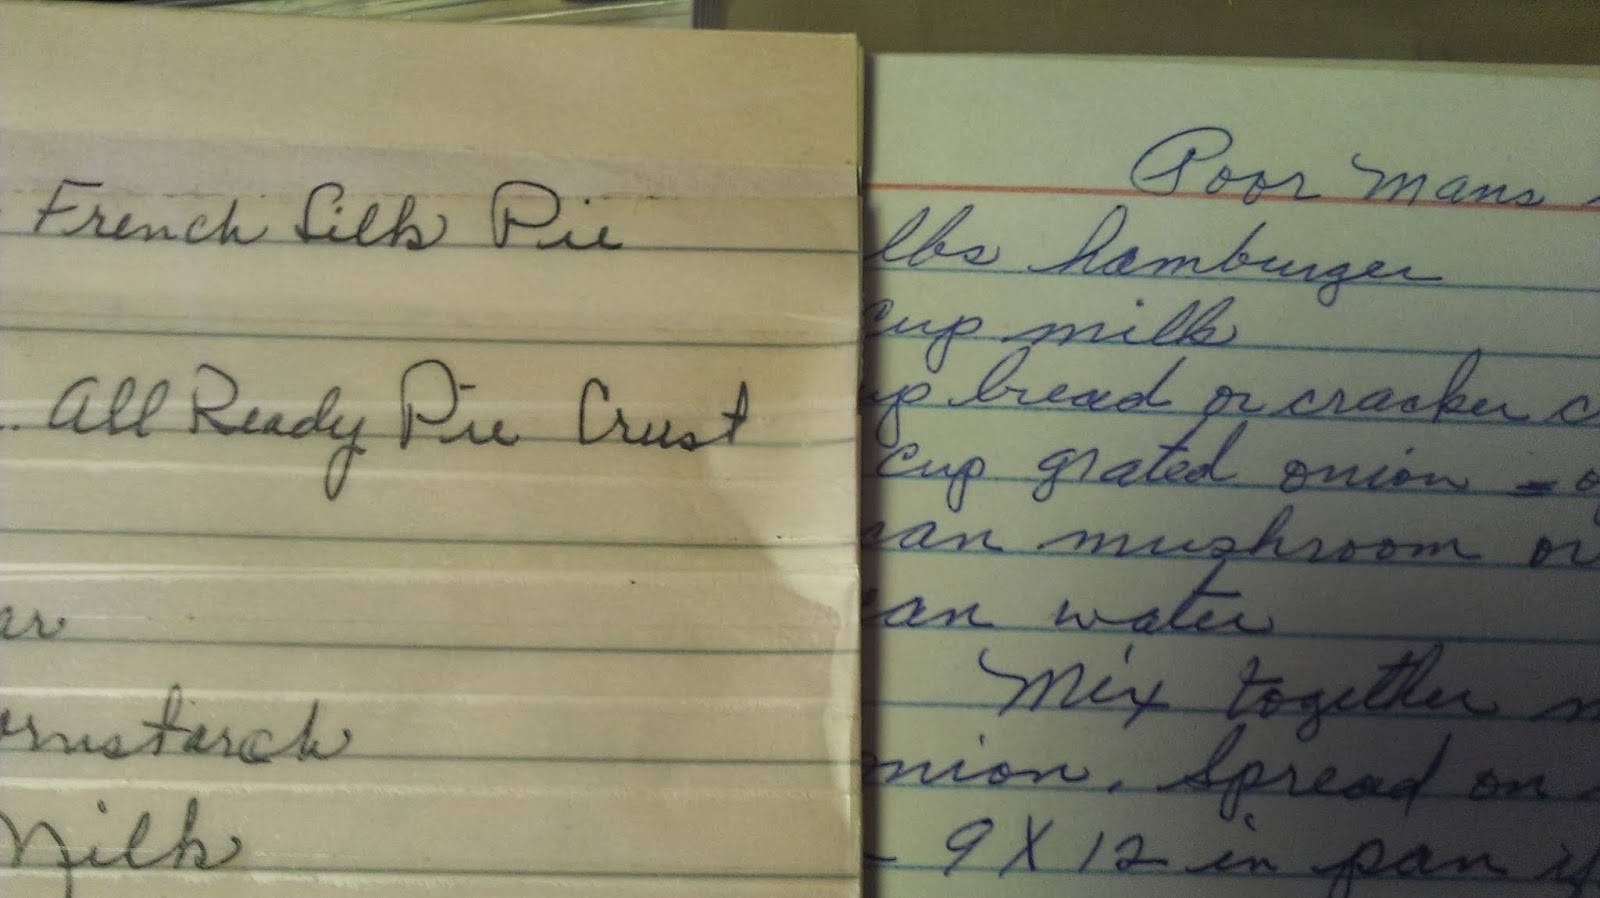 French Silk Pie
All Ready Pie Crust
ar
ornstarch
Milk
Poor Mans
lbs hamburger
cup milk
up bread or cracker c
cup grated onion = o
can mushroom or
can water
Mix together m
nion. Spread on
- 9 X 12 in pan if